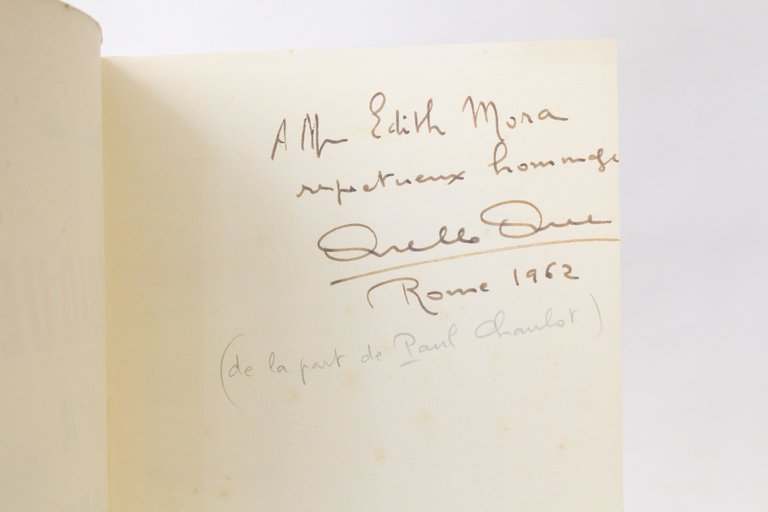 A Mme Edith Mora
respectueux hommage
Rome 1962
(de la part de Paul Chaulot)